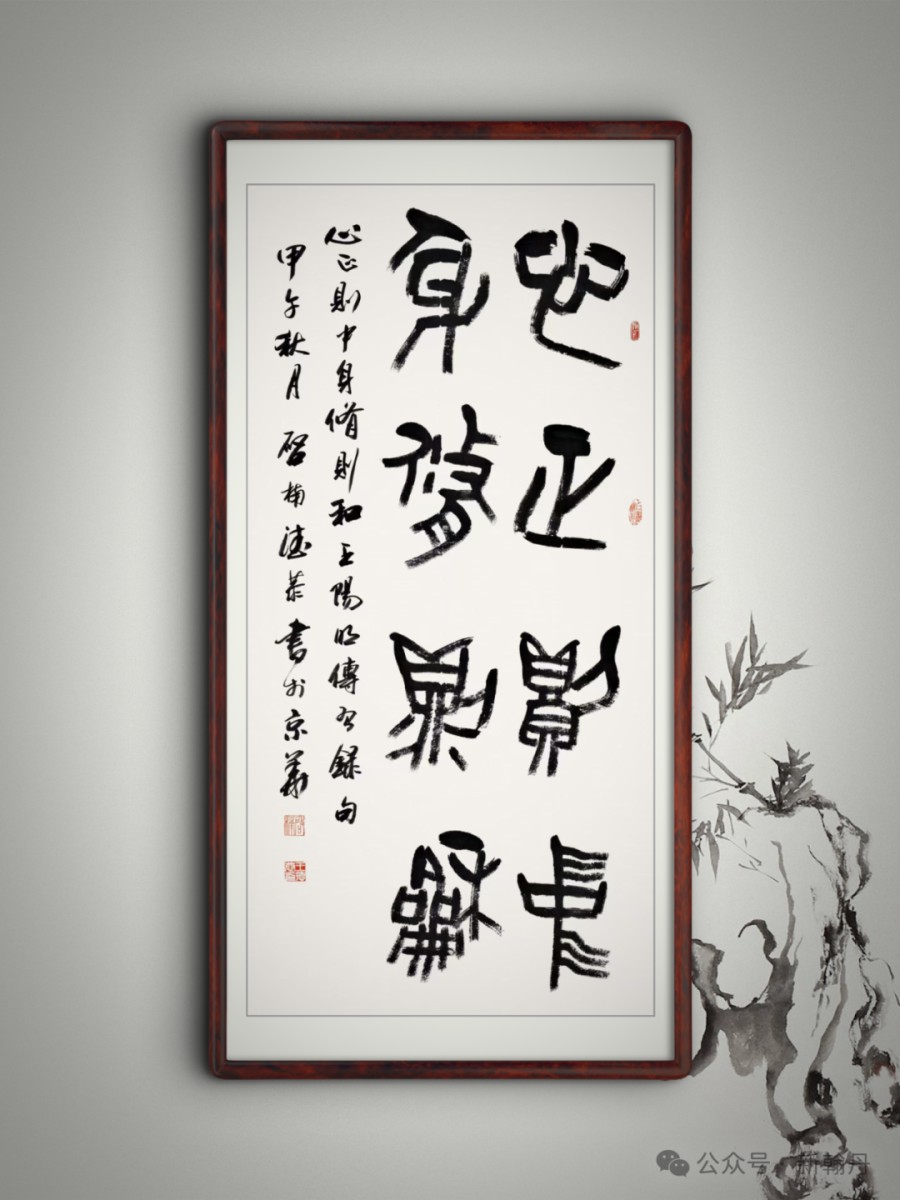 心正則中
身脩則龢
心正則中身脩則和王陽明傳習錄句
甲午秋月啓楠德恭書於京華
公众号·新翰丹